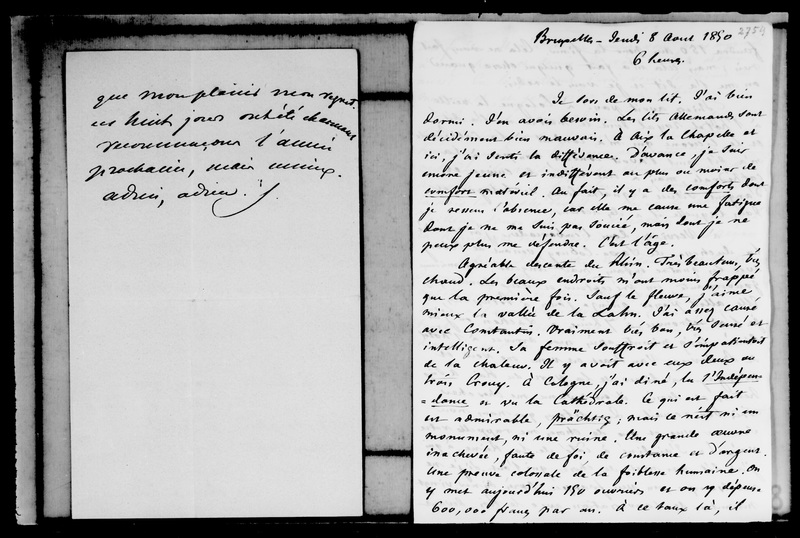 que mon plaisir mon regret.
ces huit jours ont été charmans
recommençons l'année
prochaine, mais mieux.
adieu, adieu. J.
Bruxelles - Jeudi 8 Aout 1850
2750
6 heures
Je sors de mon lit. J'ai bien
dormi. J'en avois besoin. Les lits Allemands sont
décidément bien mauvais. À Aix la Chapelle et
ici, j'ai senti la différence. D'avance je suis
encore jeune et indifférent au plus ou moins de
comfort matériel. Au fait, il y a des comforts dont
je ressens l'absence, car elle me cause une fatigue
dont je ne me suis pas soucié, mais dont je ne
peux plus me défendre. C'est l'âge.
Agréable descente du Rhin. Très beau tems, très
chaud. Les beaux endroits m'ont moins frappé
que la première fois. Sauf le fleuve, j'aime
mieux la vallée de la Lahn. J'ai assez causé
avec Constantin. Vraiment très bon, très sensé et
intelligent. Sa femme souffroit et s'impatientoit
de la chaleur. Il y avoit avec eux deux ou
trois Crouy. À Cologne, j'ai diné, lu l'Indépen-
=dance et vu la Cathédrale. Ce qui est fait
est admirable, prächtig; mais ce n'est ni un
monument, ni une ruine. Une grande œuvre
inachevée, faute de foi de constance et d'argent.
Une preuve colossale de la foiblesse humaine. On
y met aujourd'hui 150 ouvriers et on y dépense
600,000 francs par an. À ce taux là, il